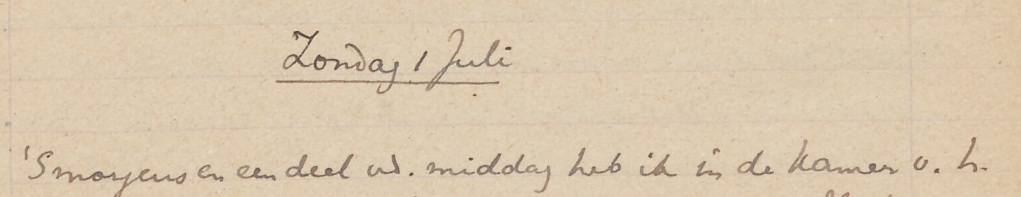 Zondag 1 Juli
'Smorgens en een deel v.d. middag heb ik in de kamer v. h.